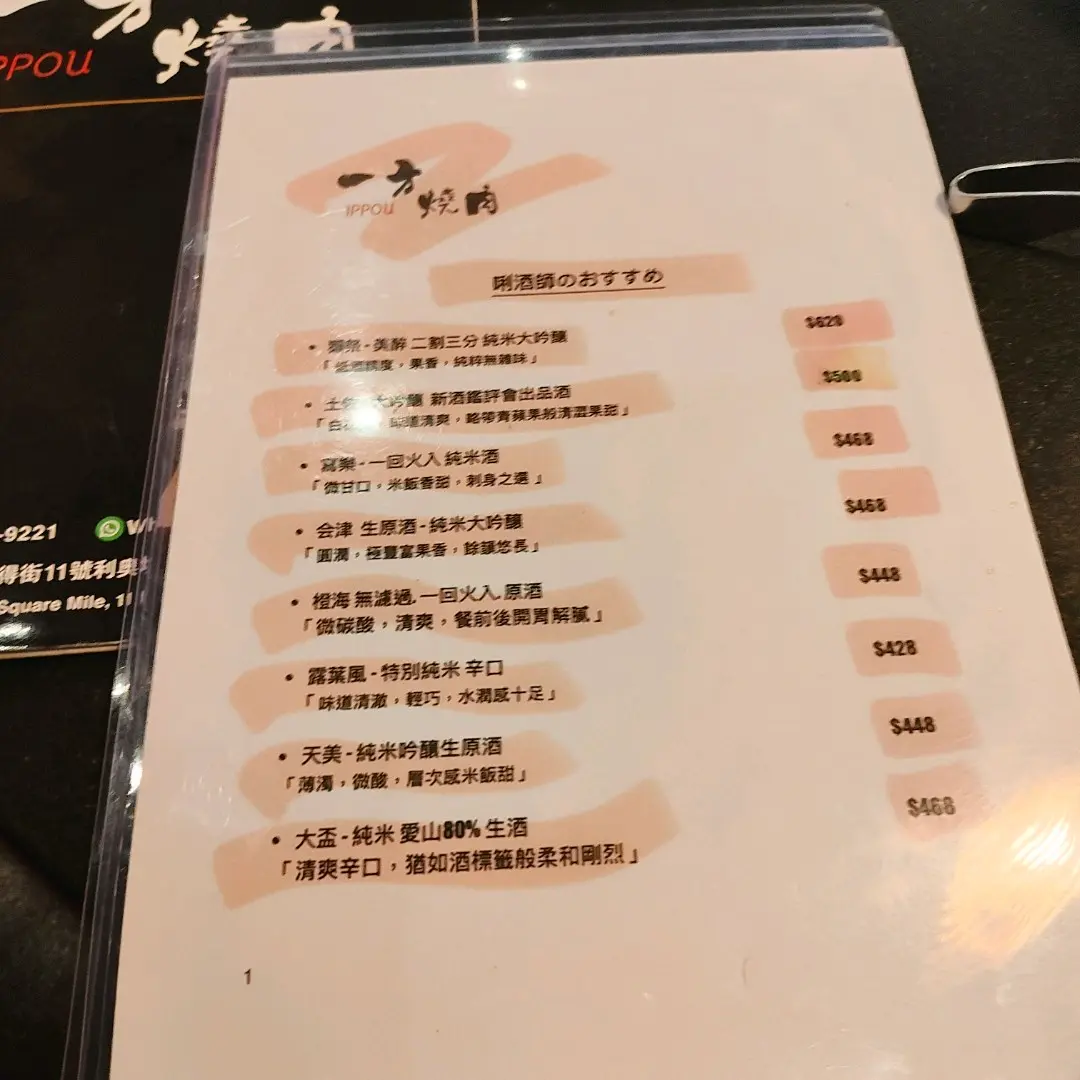 燒肉
IPPOU
一方
IPPOU 燒肉
唎酒師のおすすめ
獺祭 - 美醉 二割三分 純米大吟釀 $620
「低酒精度，果香，純粹無雜味」
大吟釀 新酒鑑評會出品酒 $500
清爽，略帶青蘋果般清澀果甜」
寫樂 - 一回火入 純米酒 $468
「微甘口，米飯香甜，刺身之選」
会津 生原酒 - 純米大吟釀 $468
「圓潤，極豐富果香，餘韻悠長」
橙海 無濾過. 一回火入. 原酒 $448
「微碳酸，清爽，餐前後開胃解膩」
露葉風 - 特別純米 辛口 $428
「味道清澈，輕巧，水潤感十足」
天美 - 純米吟釀生原酒 $448
「薄濁，微酸，層次感米飯甜」
大盃 - 純米 愛山80% 生酒 $468
「清爽辛口，猶如酒標籤般柔和剛烈」
1
-9221
得街11號利奧
Square Mile, 11